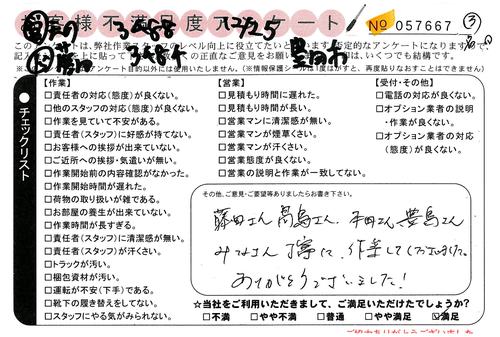 お客様不満足度アンケート
No 057667
このアンケートは、弊社作業スタッフのレベル向上に役立てたいと
は、いくつでも結構です。
アンケート目的以外には使用いたしません。(※情報保護シールは1度はがすと、再度貼りなおすことはできません)
●チェックリスト
【作業】
□責任者の対応(態度)が良くない。
□他のスタッフの対応(態度)が良くない。
□作業を見ていて不安がある。
□責任者(スタッフ)に好感が持てない。
□お客様への挨拶が出来ていない。
□ご近所への挨拶・気遣いが無い。
□作業開始前の内容確認がなかった。
□作業開始時間が遅れた。
□荷物の取り扱いが雑である。
□お部屋の養生が出来ていない。
□作業時間が長すぎる。
□責任者(スタッフ)に清潔感が無い。
□責任者(スタッフ)が汗さい。
□トラックが汚い。
□梱包資材が汚い。
□運転が不安(下手)である。
□靴下の履き替えをしてない。
□スタッフにやる気がみられない。
【営業】
□見積もり時間に遅れた。
□見積もり時間が長い。
□営業マンに清潔感が無い。
□営業マンが煙草くさい。
□営業マンが汗くさい。
□営業態度が良くない。
□営業の説明と作業が一致してない。
【受付・その他】
□電話の対応が良くない。
□オプション業者の説明
・作業が良くない。
□オプション業者の対応
(態度)が良くない。
その他、ご意見・ご要望等ありましたらお書き下さい。
藤田さん 高島さん 平田さん 豊島さん
みなさん丁寧に、作業してくださいました。
ありがとうございました!
☆当社をご利用いただきまして、ご満足いただけたでしょうか?
□不満 □やや不満 □普通 □やや満足 ☑満足
ご協力ありがとうございました